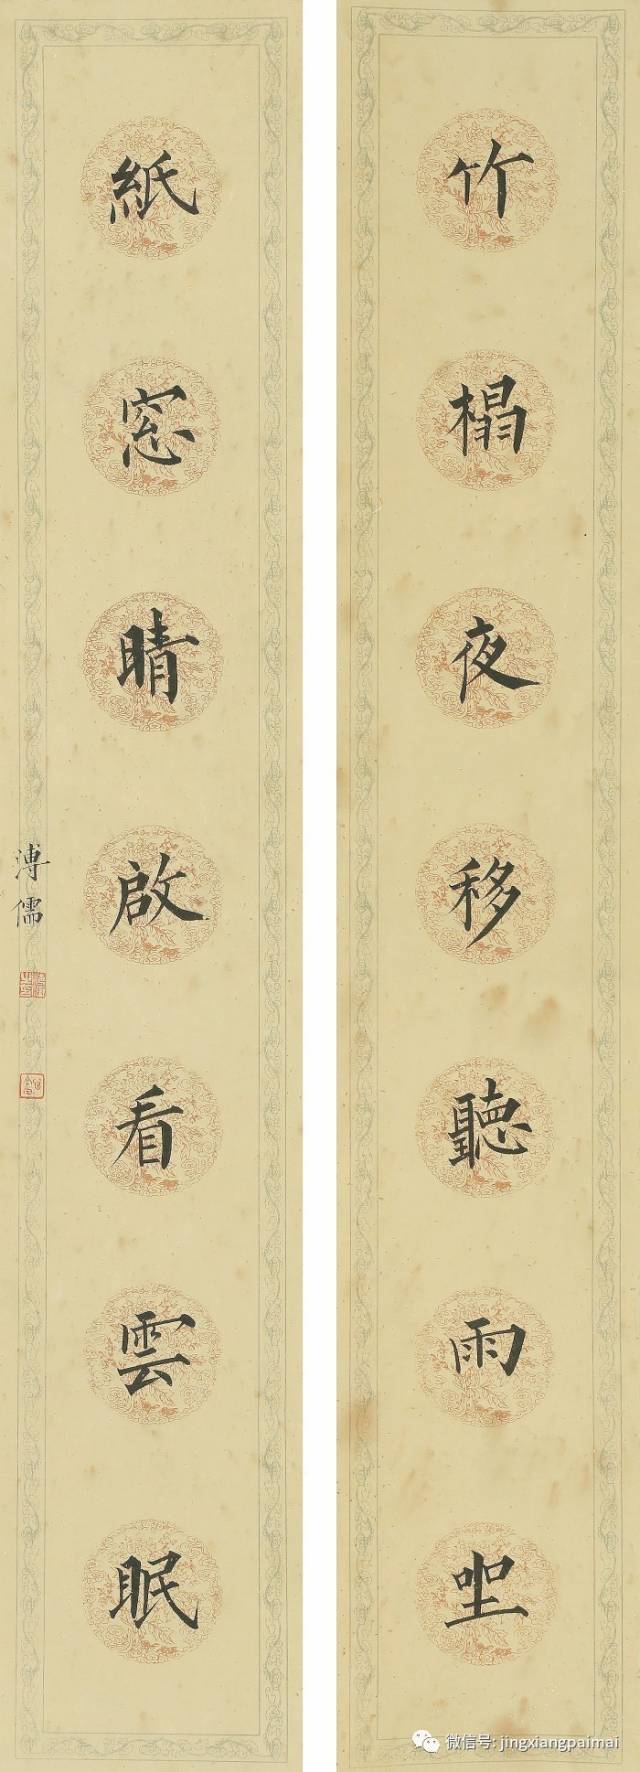 竹榻夜移聽雨坐
紙窓晴啟看雲眠
溥儒
微信号: jingxiangpaimai